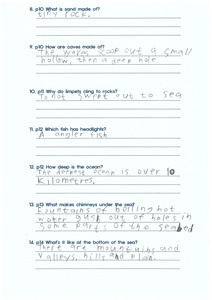 8. p10 What is sand made of?
tiny rock.
9. p10 How are caves made of?
The waves scoop out a small
hollow, then a deep hole
10. p11 Why do limpets cling to rocks?
To not swept out to sea
11. p12 Which fish has headlights?
A angler fish
12. p12 How deep is the ocean?
The deepest ocean is over 10
kilometres.
13. p12 What makes chimneys under the sea?
fountains of boiling hot
water gush out of holes in
some parts of the seabed
14. p14 What's it like at the bottom of the sea?
There are mountains and
valleys, hills and plan.